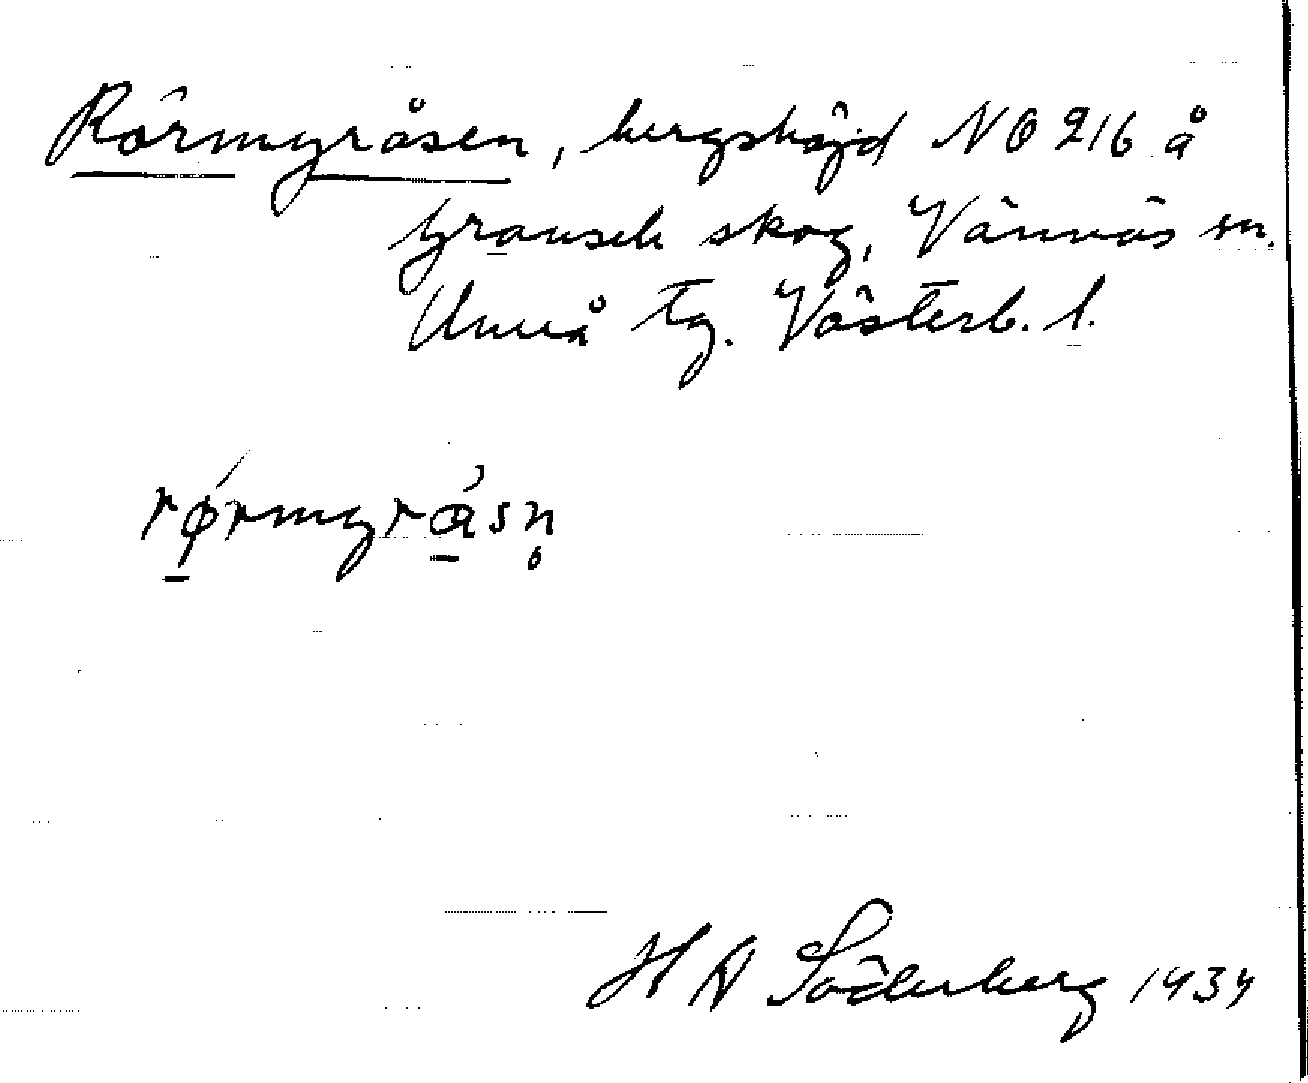 Rörmyråsen, bergshöjd NO 216 å
bransele skog, Vännäs sn.
Umeå tg. Västerb. l.
rørmyråsn̥
H A Söderberg 1934